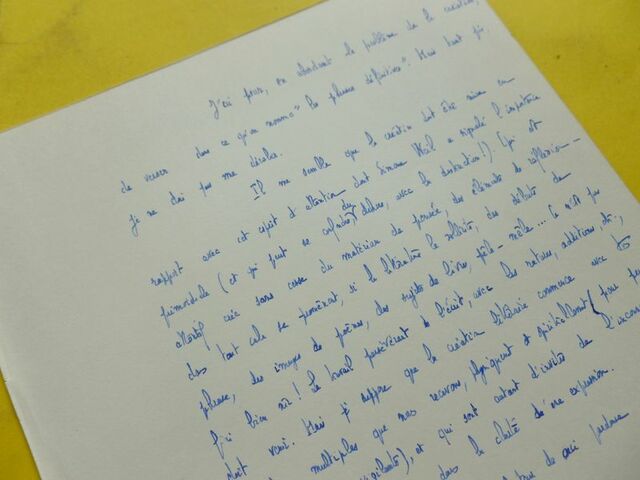 J'ai peur, en abordant le problème de la création,
de verser dans ce qu'on nomme "les phrases définitives". Mais tant pis,
je ne dois pas me dérober.
Il me semble que la création doit être mise en
rapport avec cet esprit d'attention dont Simone Weil a signalé l'importance
primordiale (et qui peut se confondre, du dehors, avec la distraction!). Qui est
attentif crée sans cesse du matériau de pensée, des éléments de réflexion –
dans tout cela se promènent, si la littérature le sollicite, des débuts de
phrase, des images de poèmes, des sujets de livres, pêle-mêle... Ce n'est pas
fini bien sûr! Le travail persévérant de l'écrit, avec les ratures, additions, etc.,
doit venir. Mais je suppose que la création littéraire commence avec
multiples que nous recevons, physiquement et spirituellement (pour peu
vigilants), et qui sont autant d'invites de
dans la clarté de une expression.
de ceci